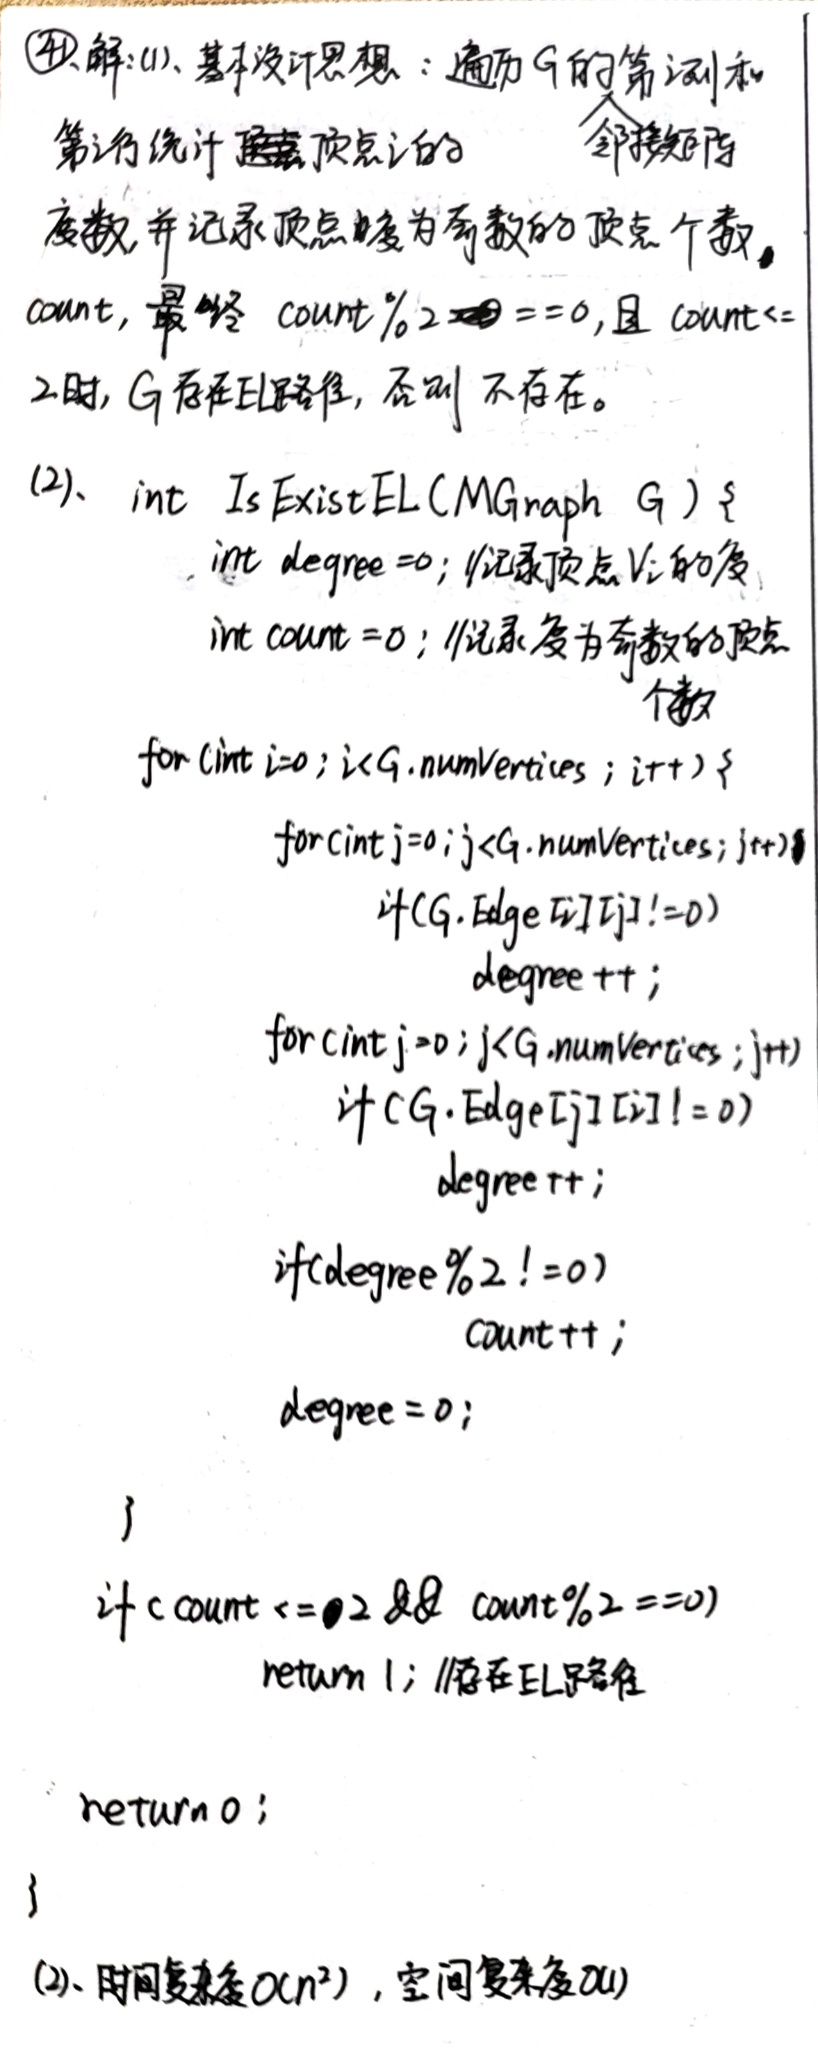 41、解:(1)、基本设计思想：遍历G的邻接矩阵第i列和
第i行统计顶点i的
度数,并记录顶点度为奇数的顶点个数。
count, 最终 count%2==0,且 count<=
2时, G存在EL路径, 否则不存在。
(2)、 int IsExistEL(MGraph G){
int degree=0; //记录顶点Vi的度
int count=0; //记录度为奇数的顶点
个数
for(int i=0; i<G.numVertices; i++){
for(int j=0; j<G.numVertices; j++)
if(G.Edge[i][j]!=0)
degree++;
for(int j=0; j<G.numVertices; j++)
if(G.Edge[j][i]!=0)
degree++;
if(degree%2!=0)
count++;
degree=0;
}
if(count<=2 && count%2==0)
return 1; //存在EL路径
return 0;
}
(2)、时间复杂度O(n²), 空间复杂度O(1)